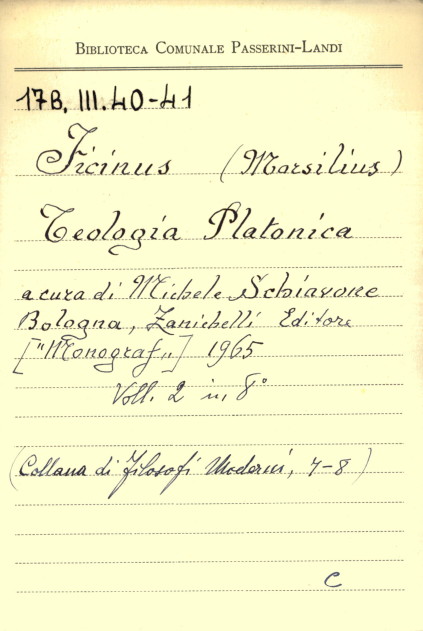 BIBLIOTECA COMUNALE PASSERINI-LANDI
17B. III.40-41
Ficinus (Marsilius)
Teologia Platonica
a cura di Michele Schiavone
Bologna, Zanichelli Editore
["Monograf„] 1965
Voll. 2 in 8°
(Collana di filosofi Moderni, 7-8)
C